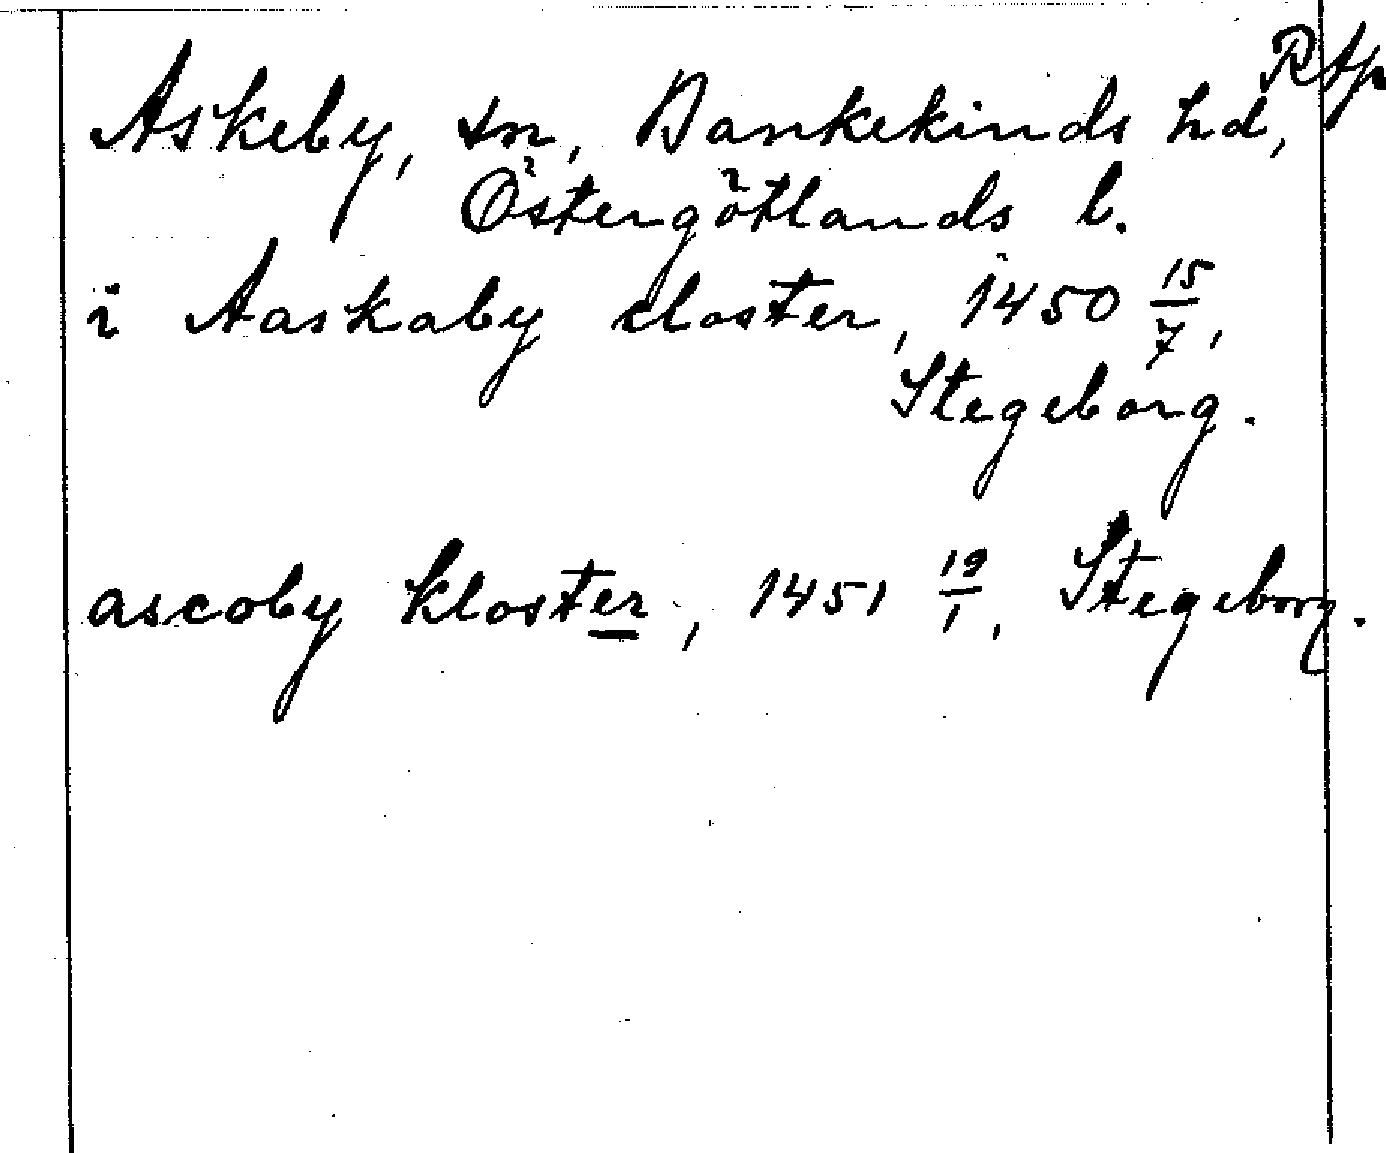 RAp
Askeby, sn, Bankekinds hd,
Östergötlands l.
i Aaskaby closter, 1450 15/7,
Stegeborg.
ascoby kloster, 1451 19/1, Stegeborg.